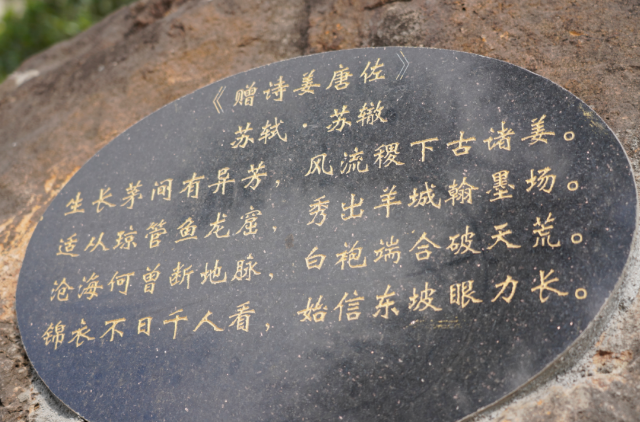 《赠诗姜唐佐》
苏轼·苏辙
生长茅间有异芳，风流稷下古诸姜。
适从琼管鱼龙窟，秀出羊城翰墨场。
沧海何曾断地脉，白袍端合破天荒。
锦衣不日千人看，始信东坡眼力长。